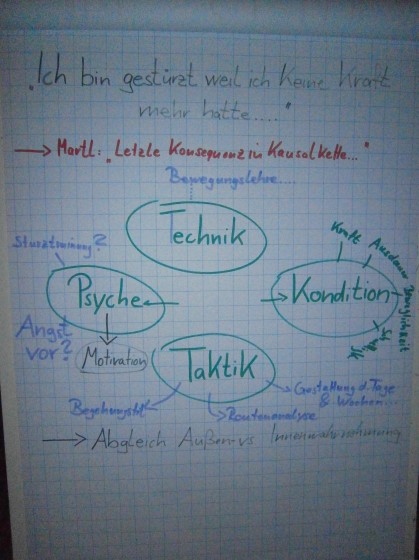 "Ich bin gestürzt weil ich keine Kraft
mehr hatte....."
→ Martl: "Letzte Konsequenz in Kausalkette..."
Bewegungslehre....
Technik
Sturztraining?
Psyche
Angst
vor?
Motivation
Kondition
Kraft
Ausdauer
Beweglichkeit
Taktik
Begehungsstil
Routenanalyse
Gestaltung d. Tage
& Wochen...
→ Abgleich Außen- vs Innenwahrnehmung